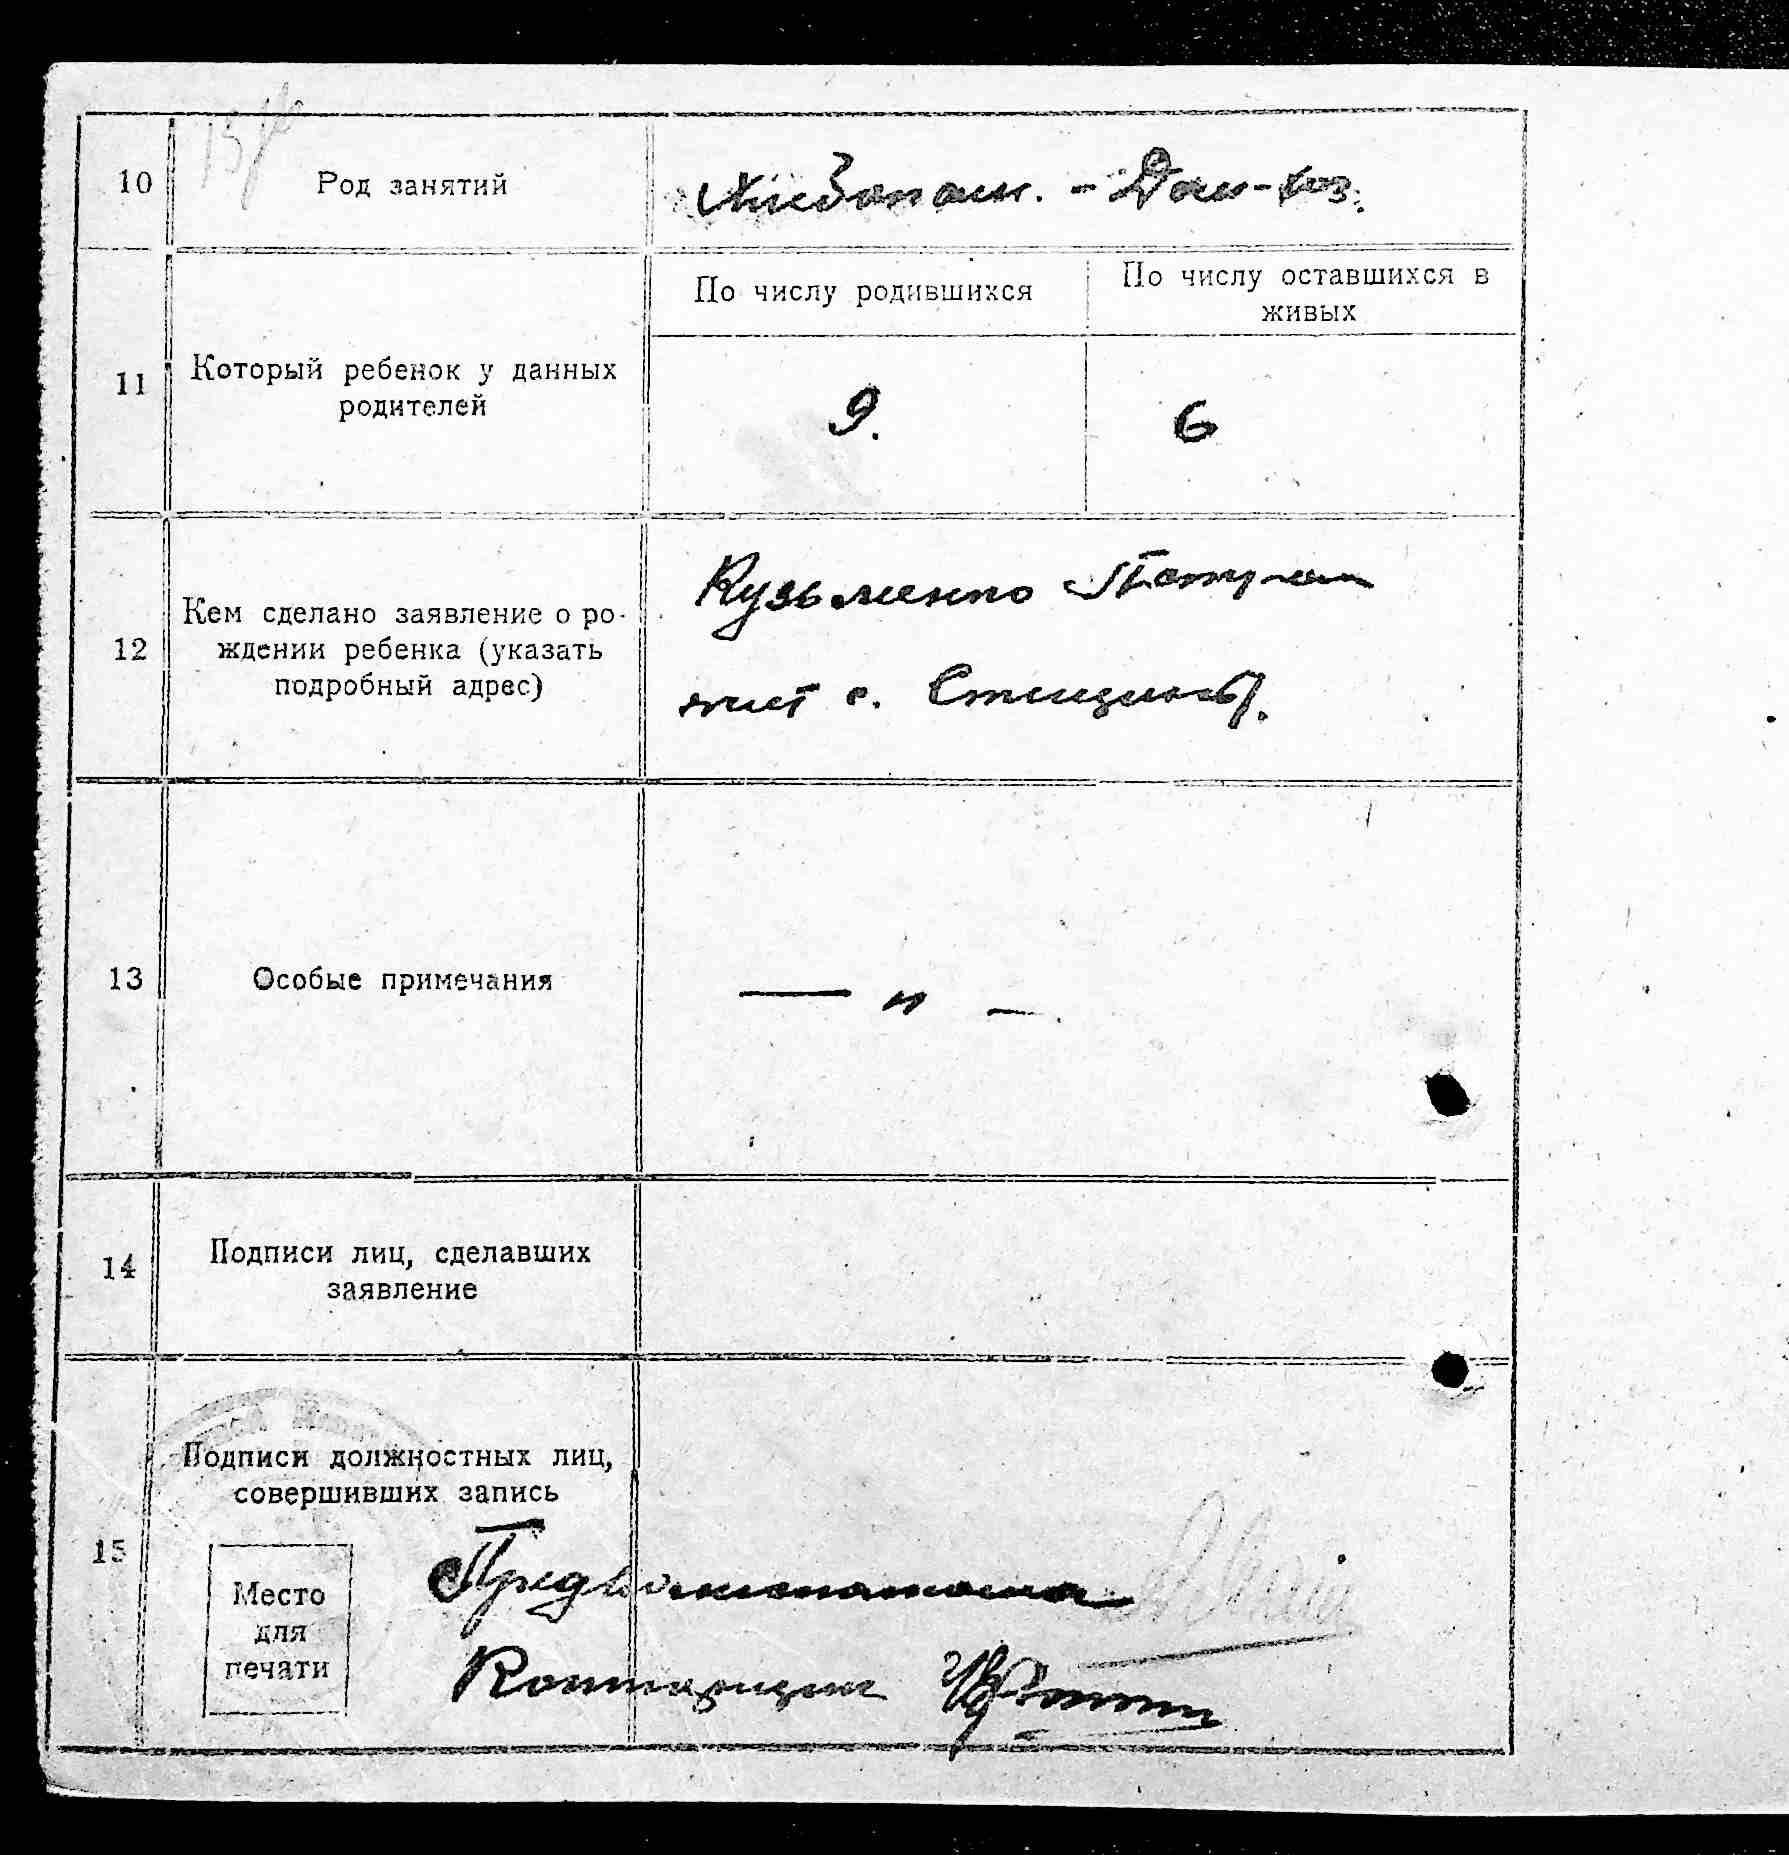 10
Род занятий
Дом-хоз.
11
Который ребенок у данных
родителей
По числу родившихся
По числу оставшихся в
живых
9.
6
12
Кем сделано заявление о ро-
ждении ребенка (указать
подробный адрес)
Кузьменко
жит с.
13
Особые примечания
— " —
14
Подписи лиц, сделавших
заявление
15
Подписи должностных лиц,
совершивших запись
Место
для
печати